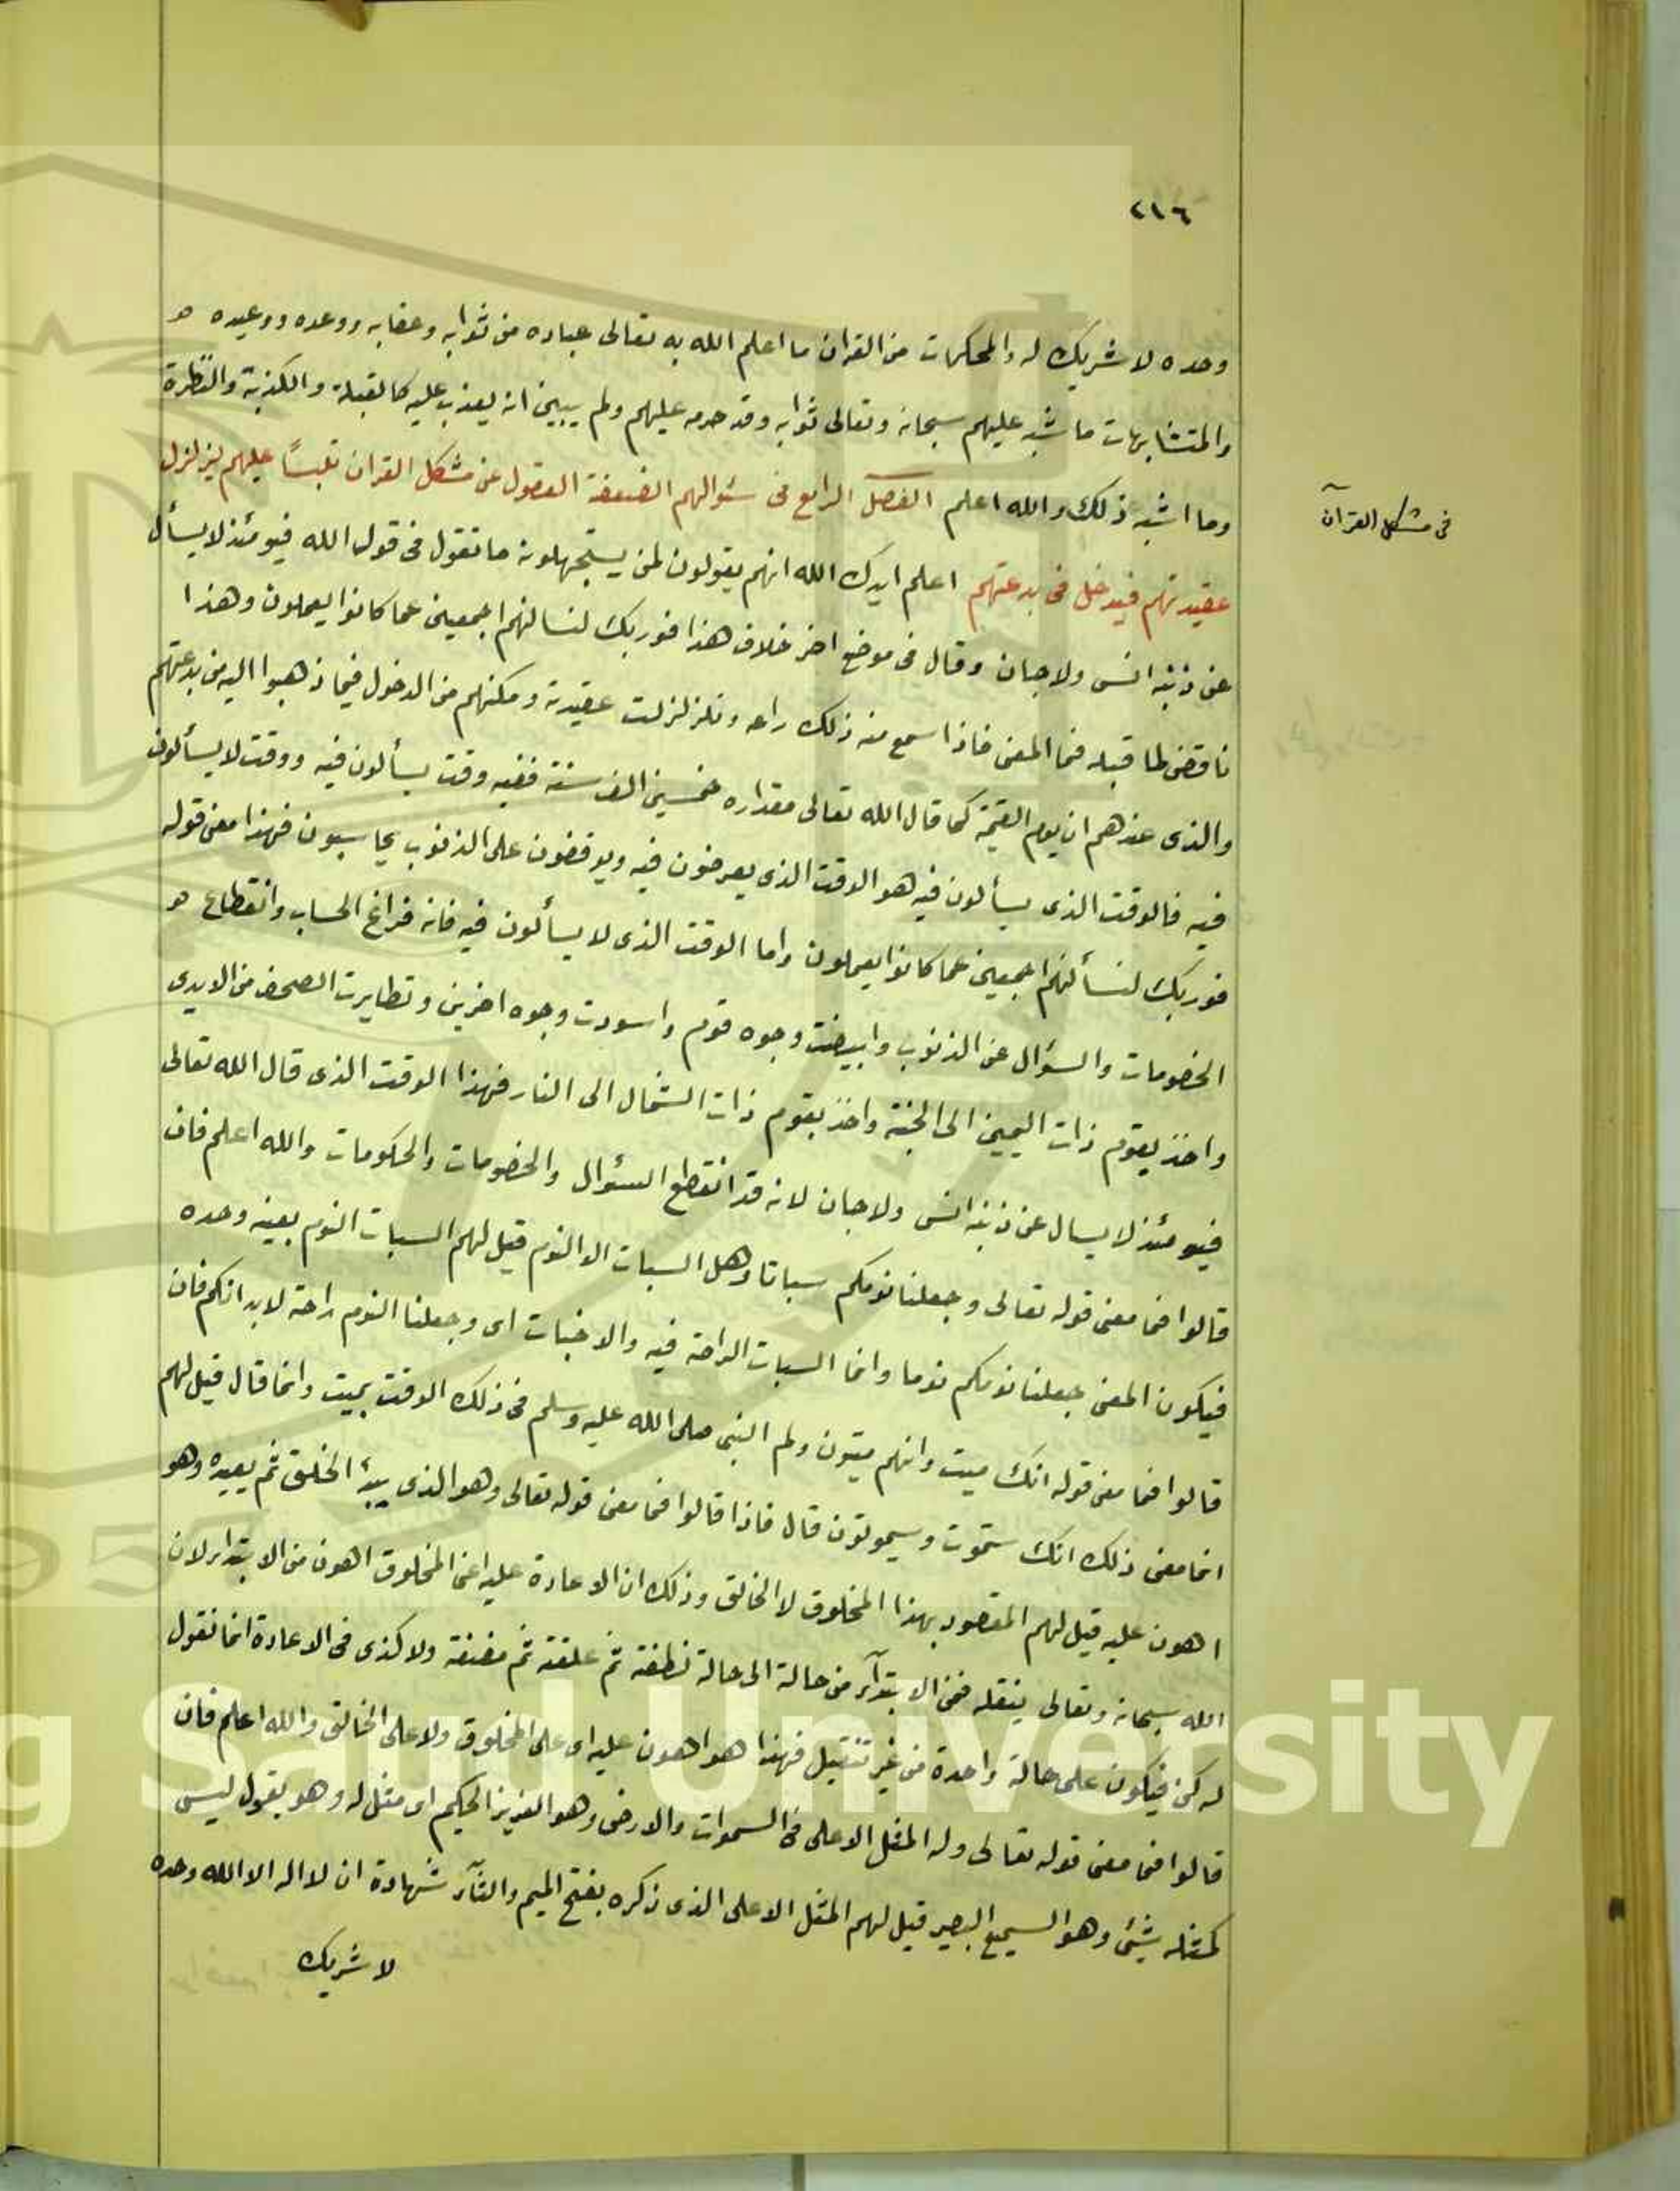 ٢١٦
وحده لا شريك له والمحكمات من القران ما اعلم الله به تعالى عباده من ثوابه وعقابه ووعده ووعيده
والمتشابهات ما شبه عليهم سبحانه وتعالى ثوابه وقد حرمه عليهم ولم يبين انه يعذب عليه كالقبلة والكذبة والنظرة
وما اشبه ذلك والله اعلم الفصل الرابع فى سئوالهم الضعفة العقول عن مشكل القران تلبساً عليهم ليزلزل
فى مشكل القرآن
عقيدتهم فيدخل فى بدعتهم اعلم ايدك الله انهم يقولون لمن يستجهلونه ما تقول فى قول الله فيومئذ لا يسأل
عن ذنبه انس ولا جان وقال فى موضع اخر خلاف هذا فوربك لنسالنهم اجمعين عما كانوا يعملون وهذا
ناقض لما قبله فما المعنى فاذا سمع منه ذلك راعه وتلزلزلت عقيدته ومكنهم من الدخول فيما ذهبوا اليه من بدعتهم
والذى عندهم ان يوم القيمة كما قال الله تعالى مقداره خمسين الف سنة ففيه وقت يسألون فيه ووقت لا يسألون
فيه فالوقت الذى يسألون فيه هو الوقت الذى يعرضون فيه ويوقفون على الذنوب يحاسبون فهذا معنى قوله
فوربك لنسألنهم اجمعين عما كانوا يعملون واما الوقت الذى لا يسألون فيه فانه فراغ الحساب وانقطاع
الخصومات والسؤال عن الذنوب وابيضت وجوه قوم واسودت وجوه اخرين وتطايرت الصحف من الايدى
واخذ بقوم ذات اليمين الى الجنة واخذ بقوم ذات الشمال الى النار فهذا الوقت الذى قال الله تعالى
فيومئذ لا يسال عن ذنبه انس ولا جان لانه قد انقطع السئوال والخصومات والحكومات والله اعلم فان
قالوا فما معنى قوله تعالى وجعلنا نومكم سباتا وهل السبات الا النوم قيل لهم السبات النوم بعينه وحده
فيكون المعنى جعلنا نومكم نوما وانما السبات الراحة فيه والاخبات اى وجعلنا النوم راحة لابدانكم فان
قالوا فما معنى قوله انك ميت وانهم ميتون ولم النبى صلى الله عليه وسلم فى ذلك الوقت بميت وانما قال قيل لهم
انما معنى ذلك انك ستموت وسيموتون قال فاذا قالوا فما معنى قوله تعالى وهو الذى يبدؤ الخلق ثم يعيده وهو
اهون عليه قيل لهم المقصود بهذا المخلوق لا الخالق وذلك ان الاعادة عليه اعنى المخلوق اهون من الابتداء لان
الله سبحانه وتعالى ينقله فى الابتدآء من حالة الى حالة نطفة ثم علقة ثم مضغة ولا كذى فى الاعادة انما نقول
له كن فيكون على حالة واحدة من غير تنقيل فهذا هو اهون عليه اى على المخلوق ولا على الخالق والله اعلم فان
قالوا فما معنى قوله تعالى وله المثل الاعلى فى السموات والارض وهو العزيز الحكيم اى مثل له وهو يقول ليس
كمثله شيئ وهو السميع البصير قيل لهم المثل الاعلى الذى ذكره بفتح الميم والثآء شهادة ان لا اله الا الله وحده
لا شريك
g Saud University
195